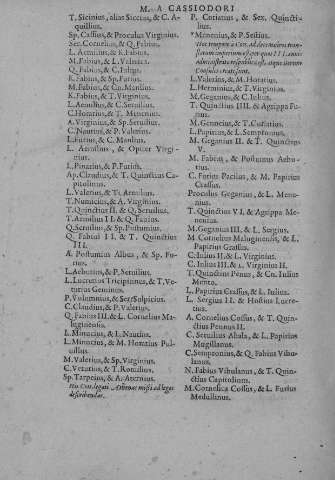 M. A CASSIODORI
T. Sicinius, alias Siccius, & C. A-
quillius.
Sp. Cassius, & Proculus Virginius.
Ser. Cornelius, & Q. Fabius.
L. Aemilius, & K. Fabius.
M. Fabius, & L. Valerius.
Q. Fabius, & C. Iulius.
K. Fabius, & Sp. Furius.
M. Fabius, & Cn. Manlius.
K. Fabius, & T. Virginius.
L. Aemilius, & C. Seruilius.
C. Horatius, & T. Menenius.
A. Virginius, & Sp. Seruilius.
C. Nautius, & P. Valerius.
L. Furius, & C. Manlius.
L. Aemilius, & Opiter Virgi-
nius.
L. Pinarius, & P. Furius.
Ap. Claudius, & T. Quinctius Ca-
pitolinus.
L. Valerius, & Ti. Aemilius.
T. Numicius, & A. Virginius.
T. Quinctius II, & Q. Seruilius.
T. Aemilius II & Q. Fabius.
Q. Seruilius, & Sp. Postumius.
Q. Fabius II, & T. Quinctius
III.
Æ. Postumius Albus, & Sp. Fu-
rius.
L. Aebutius, & P. Seruilius.
L. Lucretius Tricipitinus, & T. Ve-
turius Geminus.
P. Volumnius, & Ser. Sulpicius.
C. Claudius, & P. Valerius.
Q. Fabius III, & L. Cornelius Ma-
luginensis.
L. Minucius, & L. Nautius.
L. Minucius, & M. Horatius Pul-
uillus.
M. Valerius, & Sp. Virginius.
C. Veturius, & T. Romilius.
Sp. Tarpeius, & A. Aternius.
His Coss. legati Athenas missi ad leges
describendas.
P. Coriatius, & Sex. Quincti-
lius.
*Menenius, & P. Sestius.
L. Valerius, & M. Horatius.
L. Herminius, & T. Virginius.
M. Geganius, & C. Iulius.
T. Quinctius IIII, & Agrippa Fu-
rius.
M. Genucius, & T. Curiatius.
L. Papirius, & L. Sempronius.
M. Geganius II, & T. Quinctius
V.
M. Fabius, & Postumus Aebu-
tius.
C. Furius Pacilus, & M. Papirius
Crassus.
Proculus Geganius, & L. Mene-
nius.
T. Quinctius VI, & Agrippa Me-
nenius.
M. Geganius III, & L. Sergius.
M. Cornelius Maluginensis, & L.
Papirius Crassus.
C. Iulius II, & L. Virginius.
C. Iulius III, & L. Virginius II.
T. Quinctius Penus, & Cn. Iulius
Mento.
L. Papirius Crassus, & L. Iulius.
L. Sergius II, & Hostius Lucre-
tius.
A. Cornelius Cossus, & T. Quin-
ctius Pennus II.
C. Seruilius Ahala, & L. Papirius
Mugillanus.
C. Sempronius, & Q. Fabius Vibu-
lanus.
N. Fabius Vibulanus, & T. Quin-
ctius Capitolinus.
M. Cornelius Cossus, & L. Furius
Medullinus.